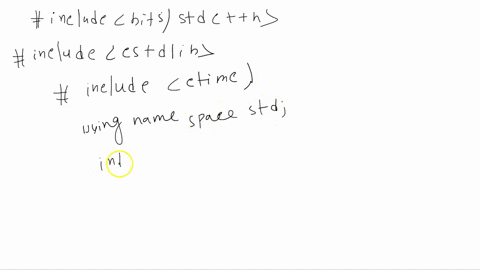 #include <bits/stdc++h>
#include <cstdlib>
# include <ctime)
using name space std;
int